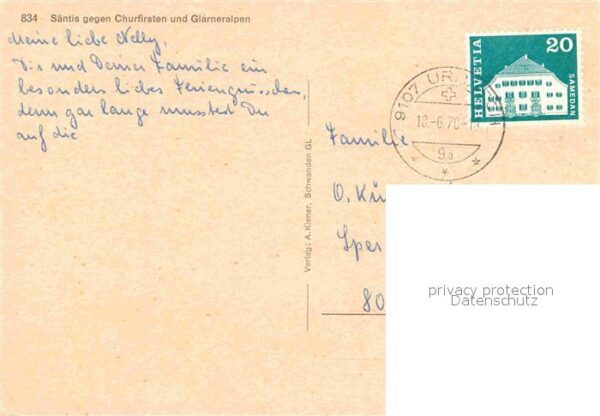 834 Säntis gegen Churfirsten und Glarneralpen
Meine liebe Nelly,
Dir und Deiner Familie ein
besonders liebes Feriengrüsschen,
denn gar lange musstest Du
auf die
HELVETIA
20
SAMEDAN
9107 UR
18.-6.70-
9a
Familie
O. Kü
Sper
80
Verlag: A. Kiener, Schwanden GL
privacy protection
Datenschutz